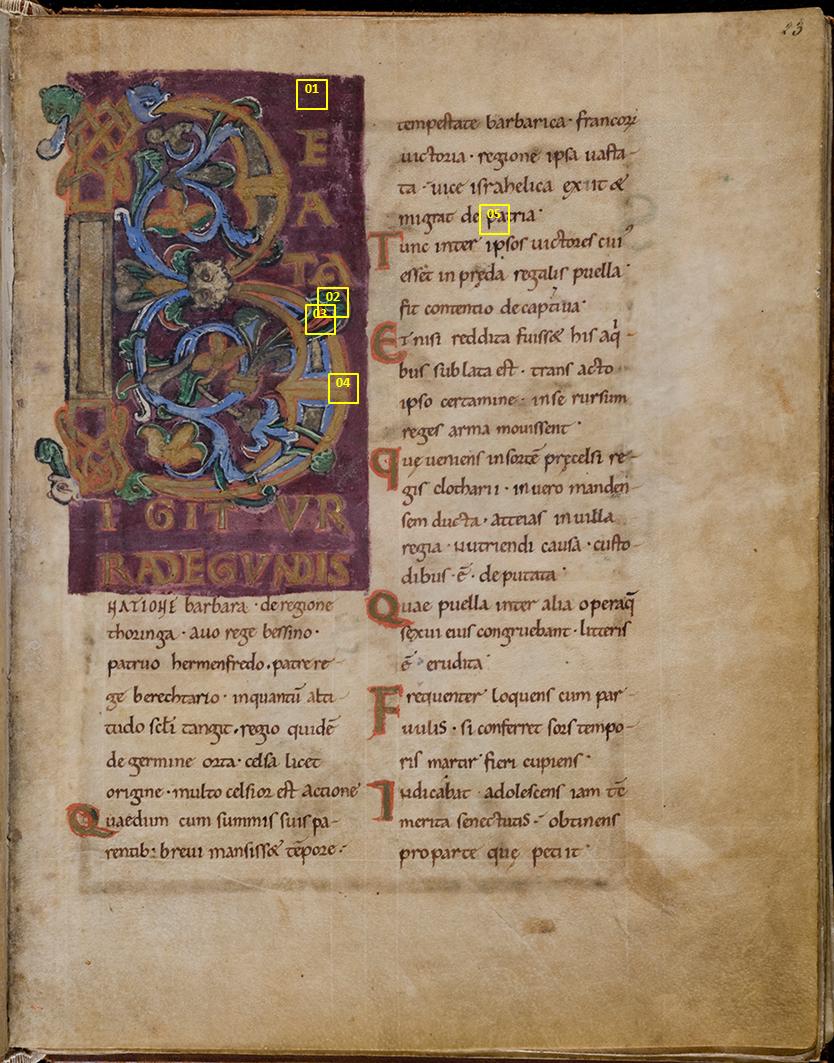 23
B
E
A
TA
IGITUR
RADEGVNDIS
NATIONE barbara · de regione
thoringa · auo rege bessino ·
patruo hermenfredo · patre re-
ge berechtario · inquantū alti
tudo scłi tangit · regio quidē
de germine orta · celsa licet
origine · multo celsior est actione ·
Quaedum cum summis suis pa-
rentib: breui mansiss& tēpore ·
tempestate barbarica · francorꝝ
uictoria · regione ipsa uasta-
ta · uice israhelica exiit &
migrat de patria ·
Tunc inter ipsos uictores cui᾽
esset in pręda regalis puella
fit contentio de captiua ·
Et nisi reddita fuiss& his aq̇-
bus sublata est · trans acto
ipso certamine · inse rursum
reges arma mouissent ·
Quę ueniens insortē pręcelsi re-
gis clotharii · inuero manden-
sem ducta · atteias in uilla
regia · nutriendi causa · custo-
dibus · ē · deputata ·
Quae puella inter alia operaq̄
sexui eius congruebant · litteris
ē · erudita ·
Frequenter loquens cum par-
uulis · si conferret sors tempo-
ris martir fieri cupiens ·
Iudicabat · adolescens iam tē
merita senectutis · obtinens
pro parte quę petiit ·
01
02
03
04
05